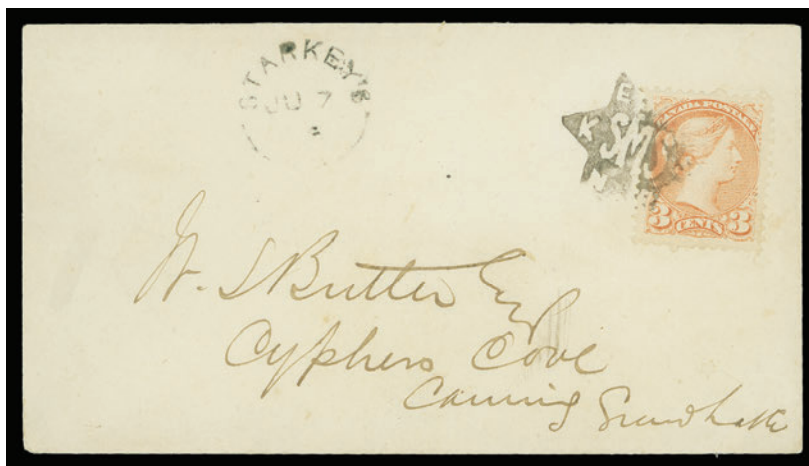 STARKEY'S
JU 7
E
K
SMS
CANADA POSTAGE
3 CENTS 3
W. S Butler Esq
Cyphers Cove
Canning Grand Lake